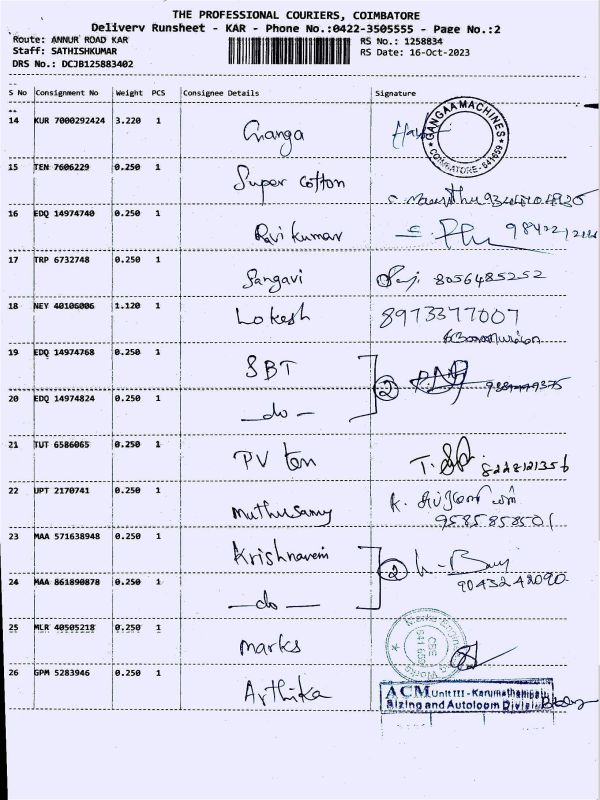 THE PROFESSIONAL COURIERS, COIMBATORE
Delivery Runsheet - KAR - Phone No.:0422-3505555 - Page No.:2
Route: ANNUR ROAD KAR RS No.: 1258834
Staff: SATHISHKUMAR RS Date: 16-Oct-2023
DRS No.: DCJB125883402
S No Consignment No Weight PCS Consignee Details Signature
14 KUR 7000292424 3.220 1 Ganga
GANGAA MACHINES
COIMBATORE - 641659
15 TEN 7606229 0.250 1 Super cotton
16 EDQ 14974740 0.250 1 Ravi kumar
17 TRP 6732748 0.250 1 Sangavi 8056485252
18 NEY 40106006 1.120 1 Lokesh 8973377007
19 EDQ 14974768 0.250 1 SBT
2
20 EDQ 14974824 0.250 1 -do-
21 TUT 6586065 0.250 1 PV Tex 8228121356
22 UPT 2170741 0.250 1 Muthusamy K.
9585858501
23 MAA 571638948 0.250 1 Krishnaveni
2
9043242090
24 MAA 861890878 0.250 1 -do-
25 MLR 40505218 0.250 1 Marks
26 GPM 5283946 0.250 1 Arthika
ACM Unit III - Karumathampatti
Sizing and Autoloom Division